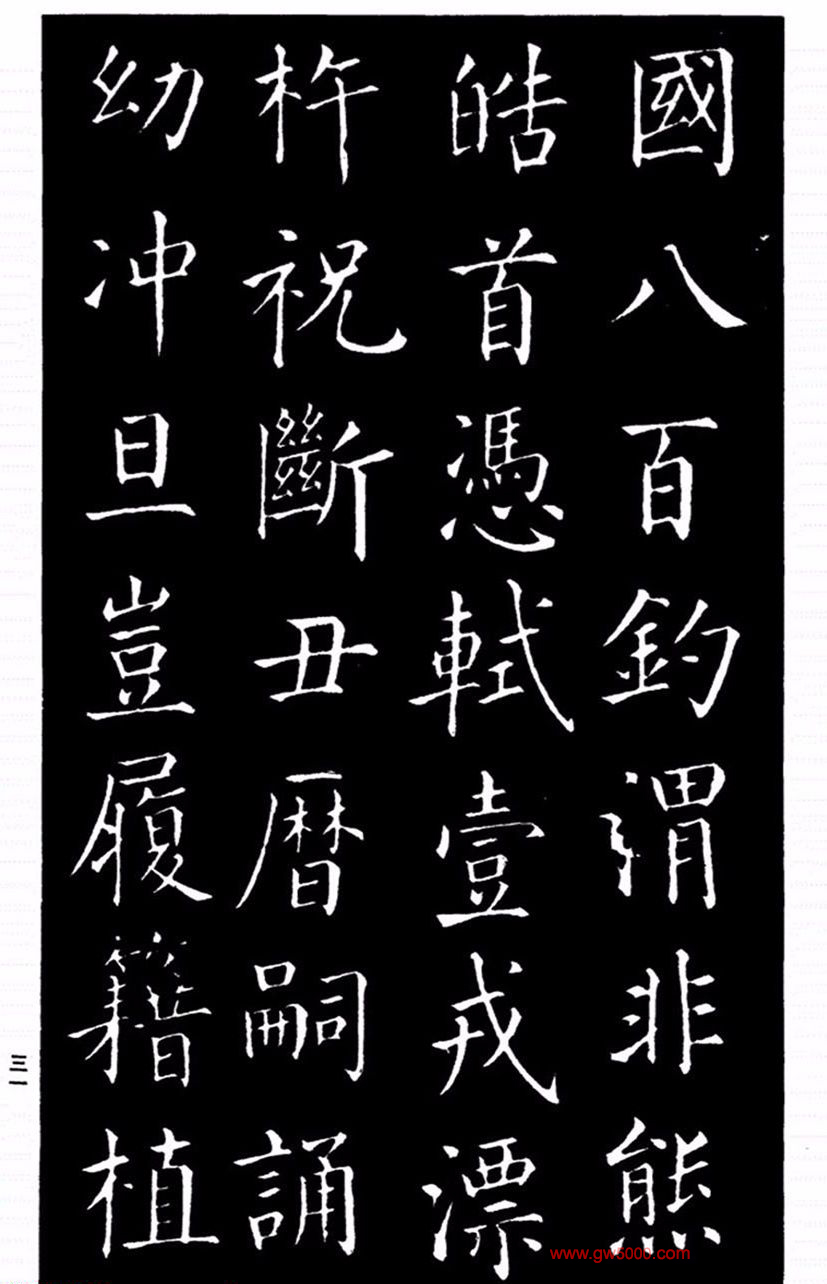 國八百釣謂非熊
皓首憑軾壹戎漂
杵祝斷丑曆嗣誦
幼冲旦豈履籍植
三一
www.gw5000.com